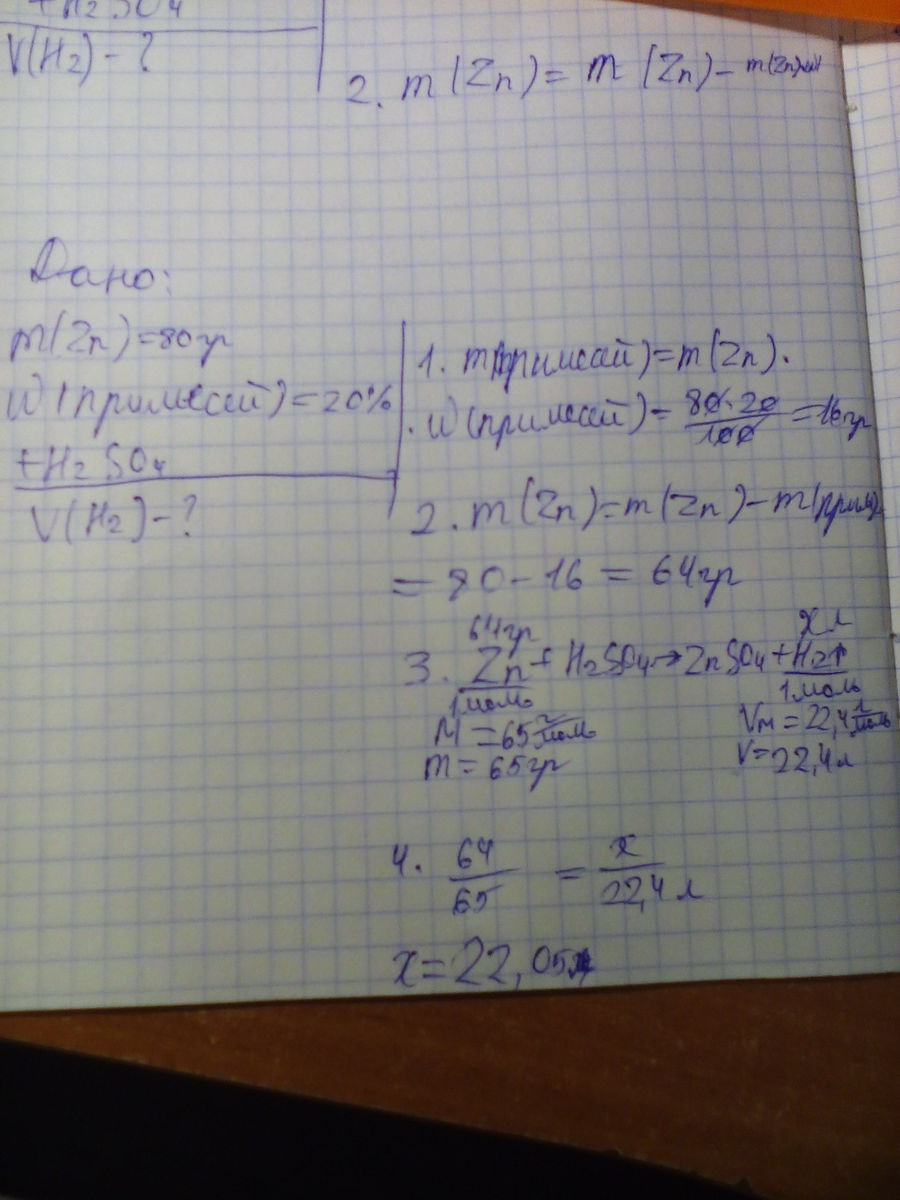 +H₂SO₄
V(H₂) - ?
2. m(Zn) = m(Zn) -
Дано:
m(Zn) = 80гр
W(примесей) = 20%
+H₂SO₄
V(H₂) - ?
1. m(примесей) = m(Zn) ·
· W(примесей) = 80·20/100 = 16гр
2. m(Zn) = m(Zn) - m(прим)
= 80 - 16 = 64гр
64гр xл
3. Zn + H₂SO₄ → ZnSO₄ + H₂↑
1моль 1моль
M = 65 г/моль Vм = 22,4 л/моль
m = 65гр V = 22,4л
4. 64/65 = x/22,4л
x = 22,05л